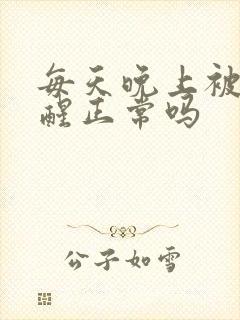 每天晚上被
醒正常吗
公子如雪